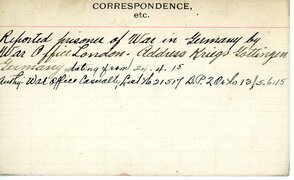 CORRESPONDENCE,
etc.
Reported prisoner of War in Germany by
War Office London. Address Kriegs Gottingen
Germany dating from 24.4.15
Authy: War Office Casualty List No 21517 B.P.2 Or No 13/5.6.15